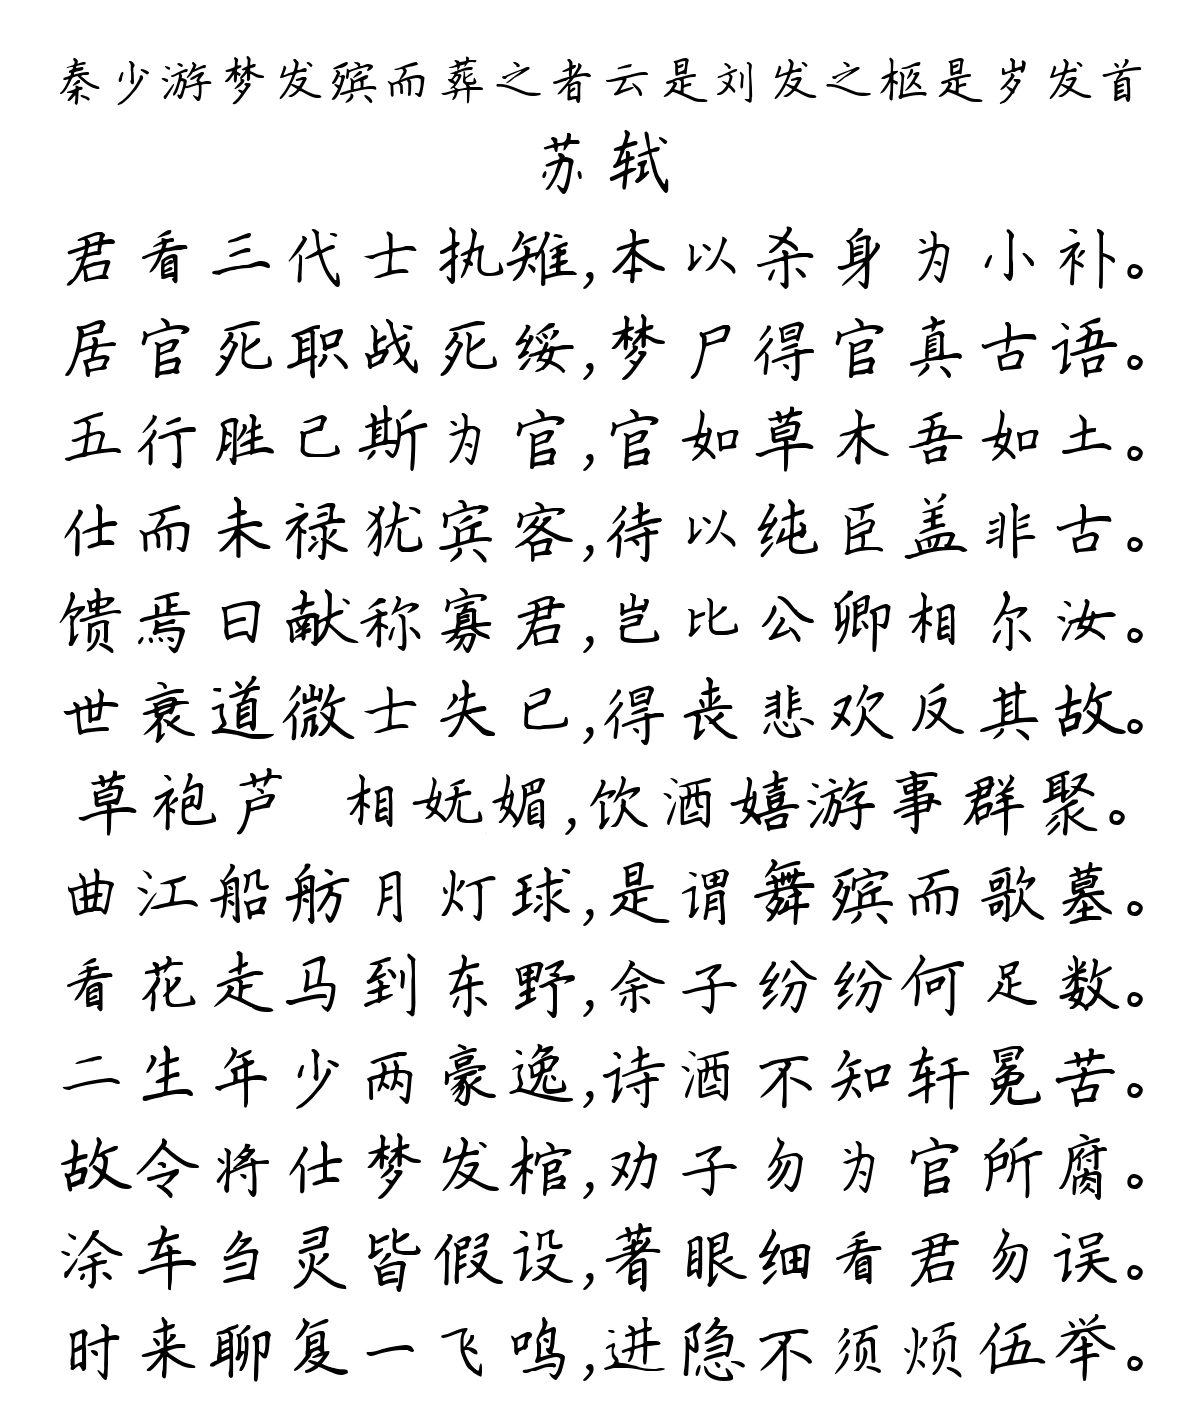 秦少游梦发殡而葬之者云是刘发之柩是岁发首
苏轼
君看三代士执雉,本以杀身为小补。
居官死职战死绥,梦尸得官真古语。
五行胜己斯为官,官如草木吾如土。
仕而未禄犹宾客,待以纯臣盖非古。
馈焉曰献称寡君,岂比公卿相尔汝。
世衰道微士失己,得丧悲欢反其故。
草袍芦 相妩媚,饮酒嬉游事群聚。
曲江船舫月灯球,是谓舞殡而歌墓。
看花走马到东野,余子纷纷何足数。
二生年少两豪逸,诗酒不知轩冕苦。
故令将仕梦发棺,劝子勿为官所腐。
涂车刍灵皆假设,著眼细看君勿误。
时来聊复一飞鸣,进隐不须烦伍举。